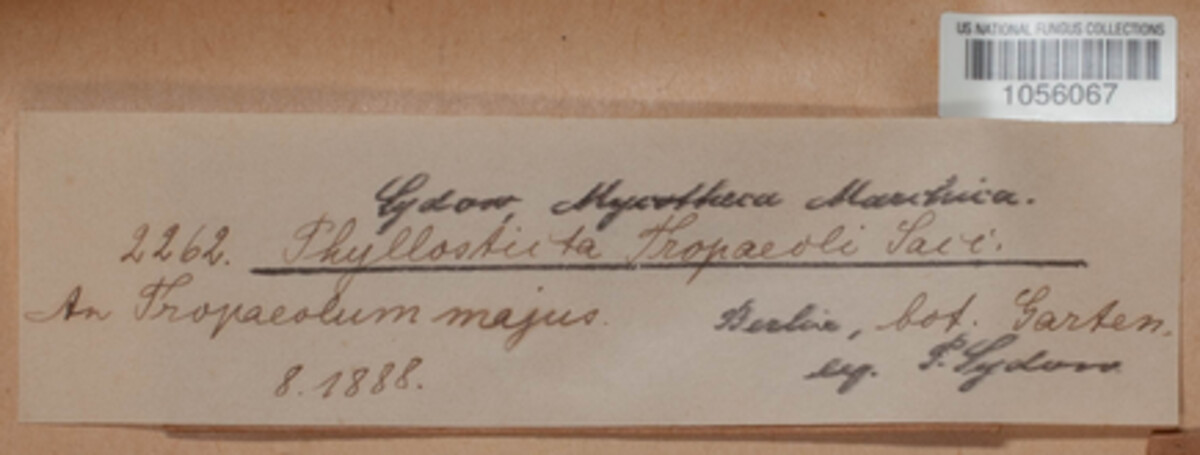 US NATIONAL FUNGUS COLLECTIONS
1056067
Sydow, Mycotheca Marchica.
2262. Phyllosticta Tropaeoli Sacc.
An Tropaeolum majus. Berlin, bot. Garten.
8. 1888. leg. P. Sydow